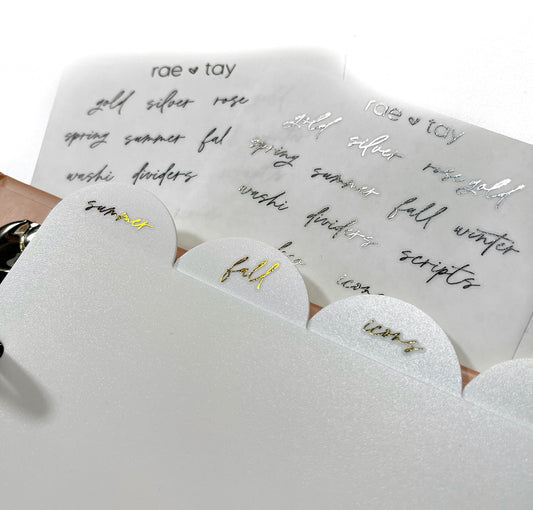 rae tay
gold silver rose
spring summer fal
washi dividers
rae tay
gold silver rose gold
spring summer fall winter
washi dividers scripts
icons
summer
fall
icons